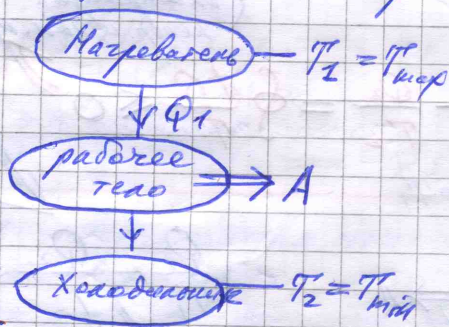 Нагреватель — T₁ = Tmax
Q₁
рабочее
тело ⇒ A
Холодильник — T₂ = Tmin